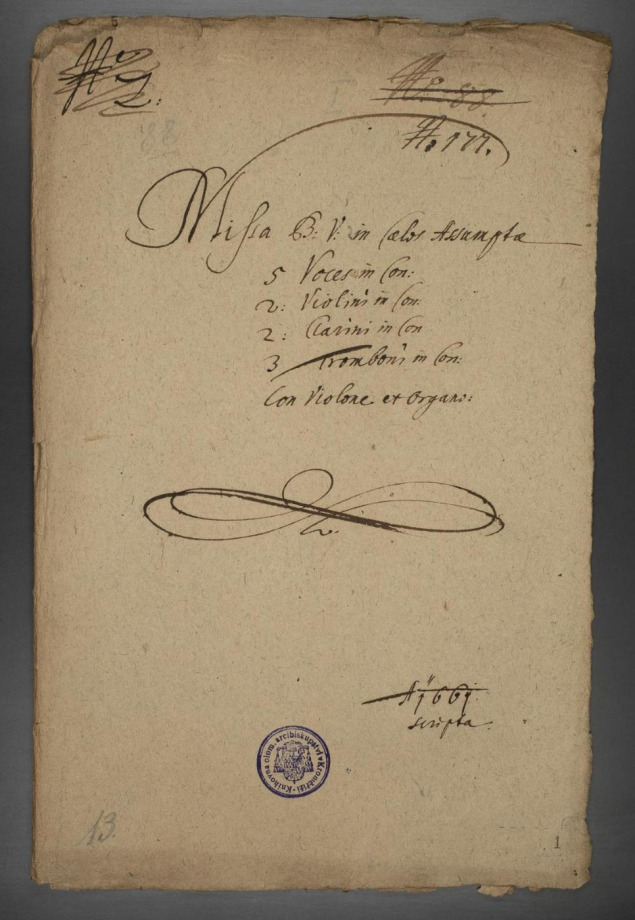 No 2:
No. 88.
88
No 177.
Missa B: V: in Cælos Assumptæ
5 Voces in Con:
2: Violini in Con:
2: Clarini in Con
3 Tromboni in Con:
Con Violone et Organo:
A 1661
scripta.
Knihovna olom. arcibiskupství v Kroměříži
13.
1